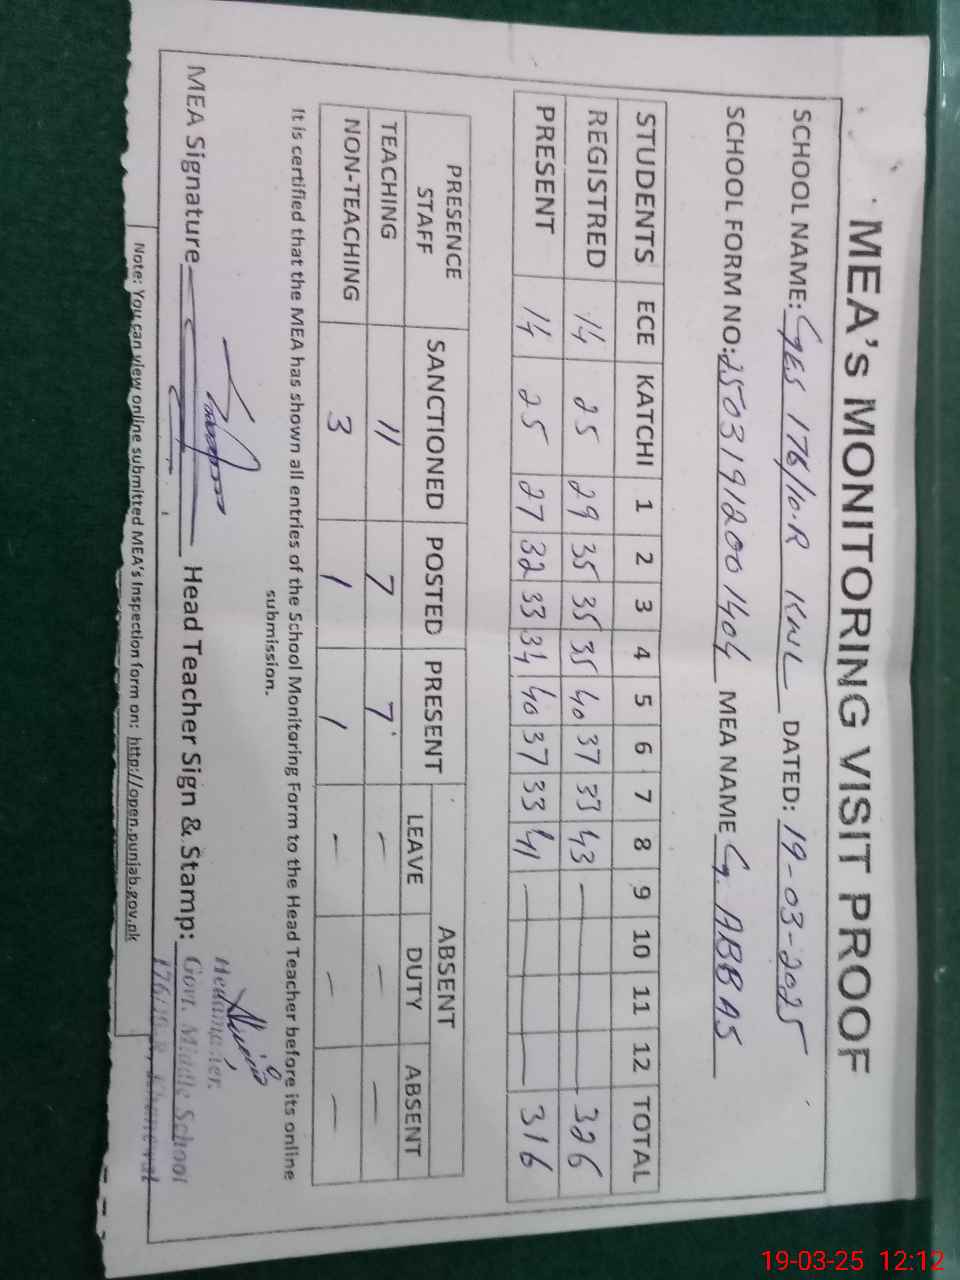 MEA's MONITORING VISIT PROOF
SCHOOL NAME: GES 176/10.R KWL DATED: 19-03-2025
SCHOOL FORM NO: 25031912001404 MEA NAME G. ABBAS
STUDENTS ECE KATCHI 1 2 3 4 5 6 7 8 9 10 11 12 TOTAL
REGISTRED 14 25 29 35 35 35 40 37 33 43 — — — — 326
PRESENT 14 25 27 32 33 34 40 37 33 41 — — — — 316
PRESENCE STAFF SANCTIONED POSTED PRESENT ABSENT
LEAVE DUTY ABSENT
TEACHING 11 7 7 — — —
NON-TEACHING 3 1 1 — — —
It is certified that the MEA has shown all entries of the School Monitoring Form to the Head Teacher before its online
submission.
MEA Signature Head Teacher Sign & Stamp:
Headmaster
Govt. Middle School
176/10.R, Khanewal
Note: You can view online submitted MEA's Inspection form on: http://open.punjab.gov.pk
19-03-25 12:12